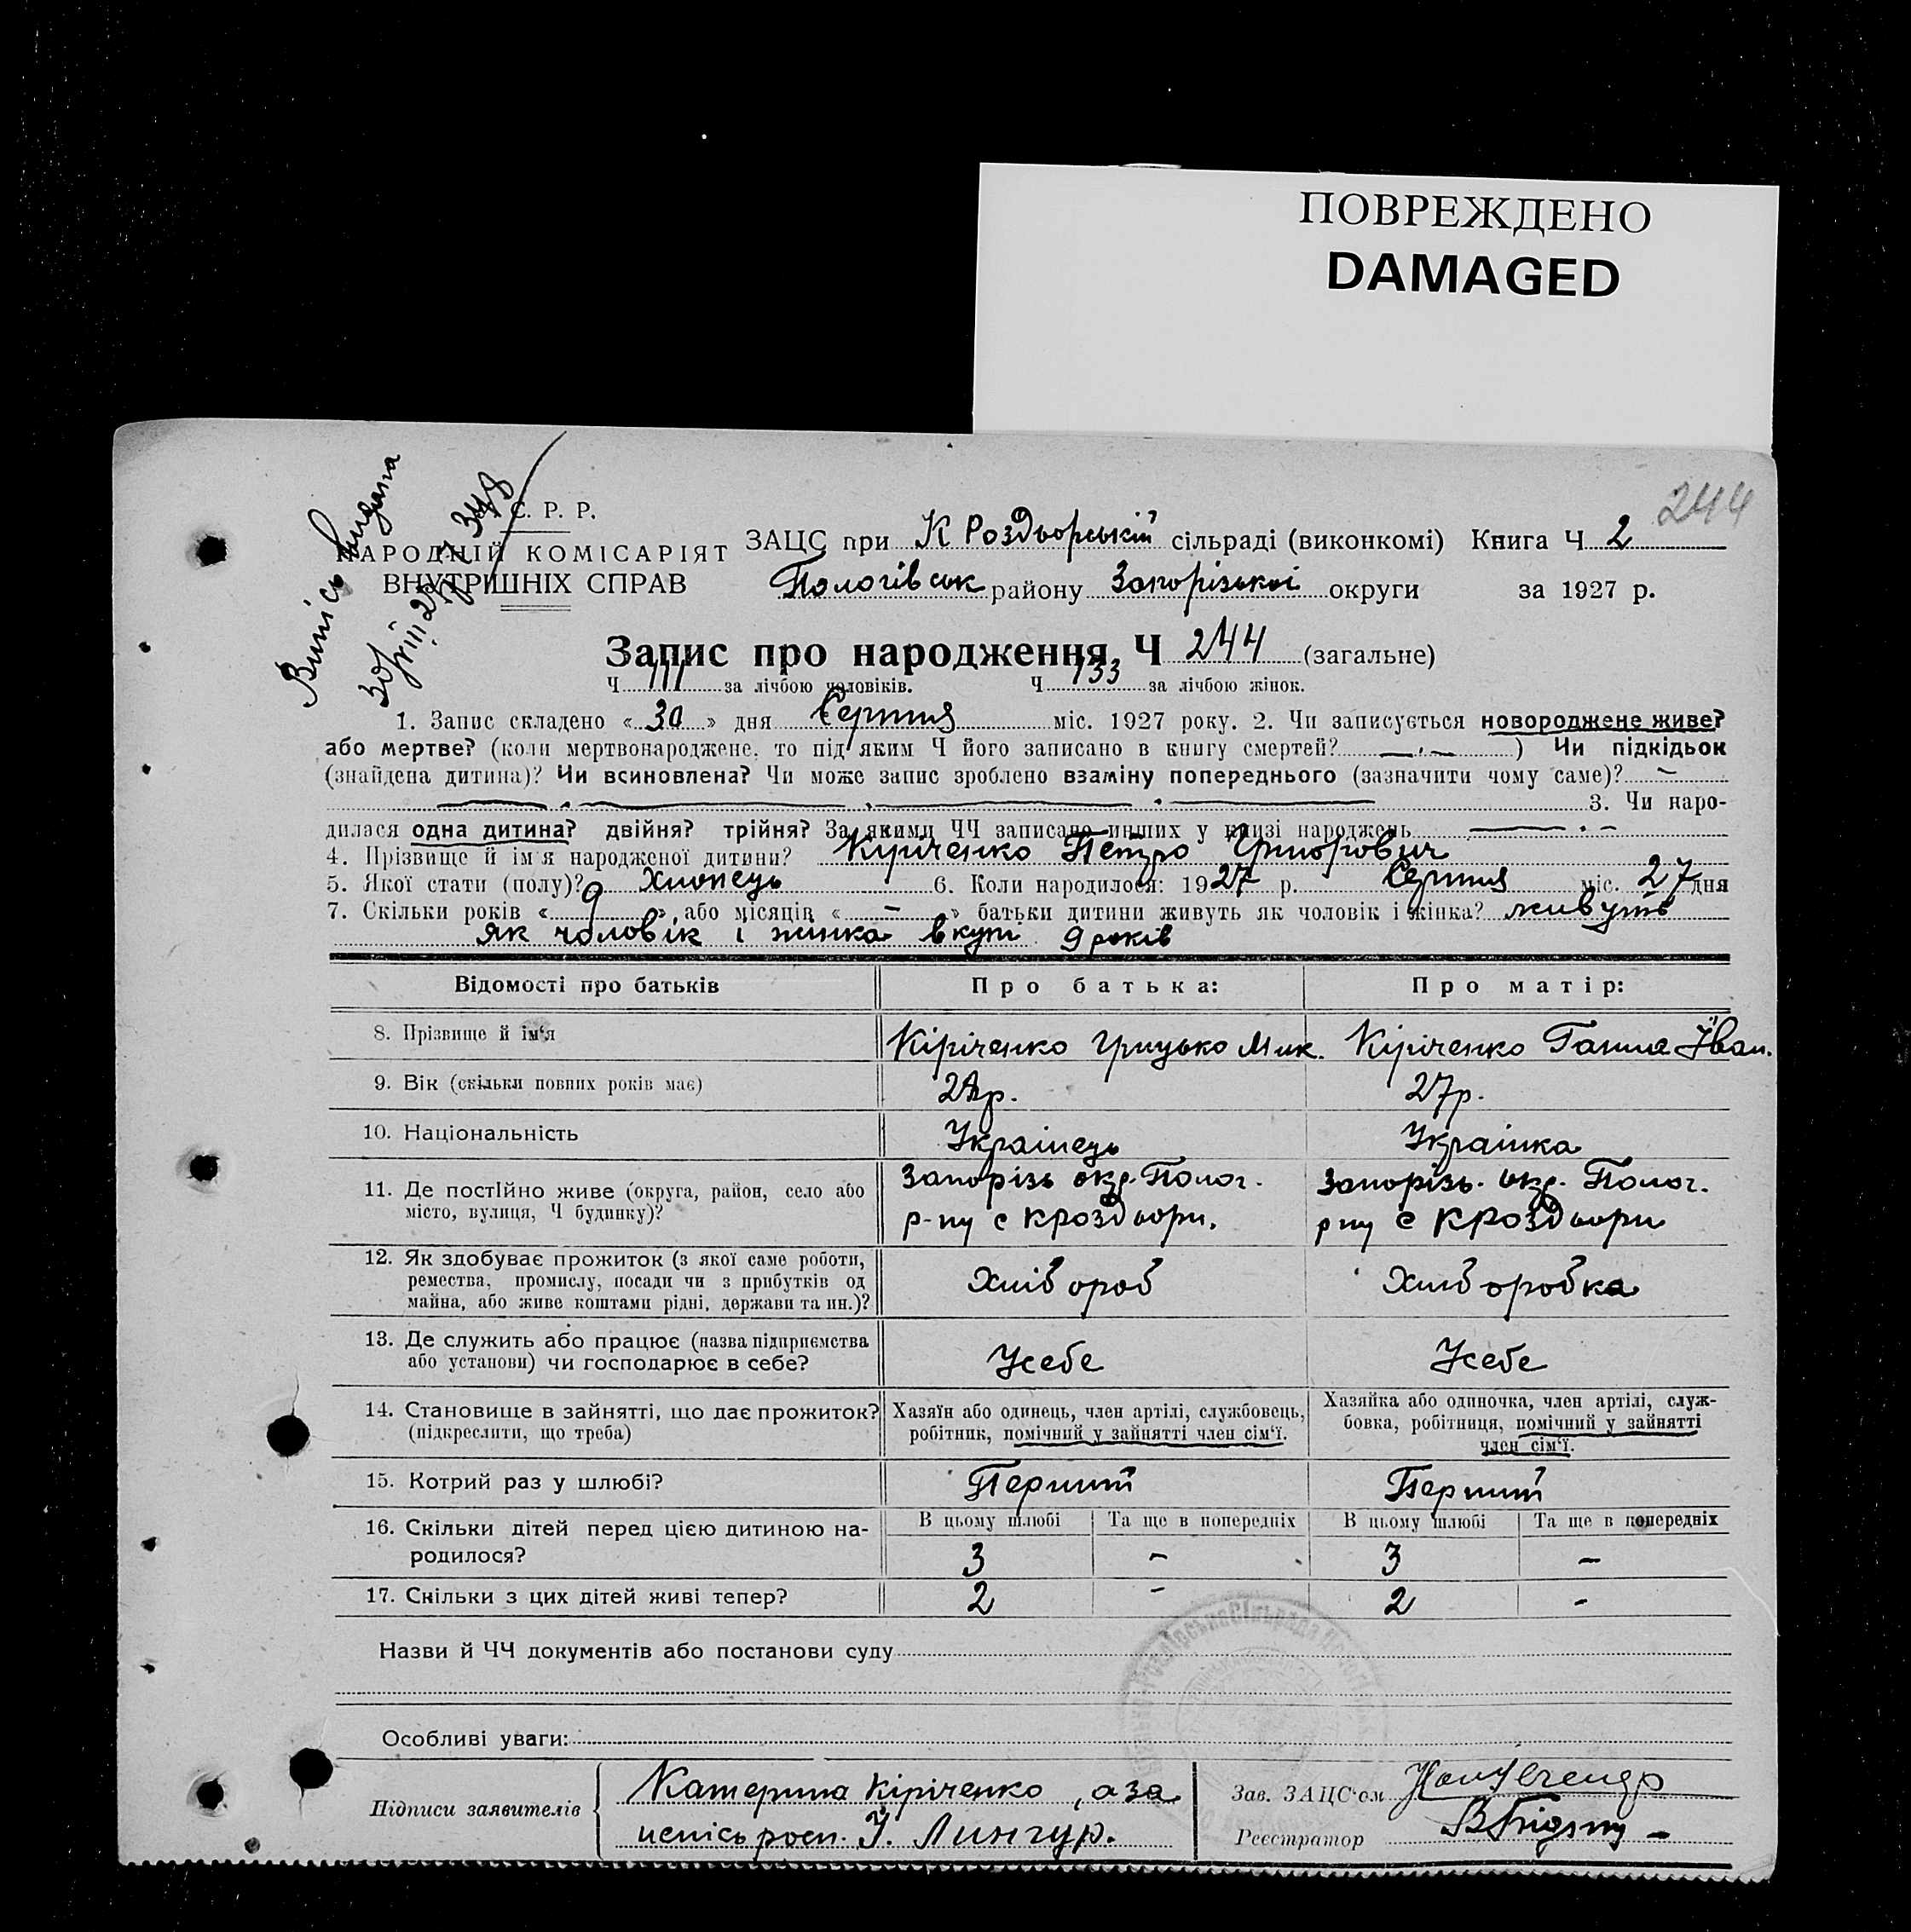 ПОВРЕЖДЕНО
DAMAGED
244
Випісь видана
С. Р. Р.
НАРОДНІЙ КОМІСАРІЯТ
ВНУТРИШНІХ СПРАВ
ЗАЦС при К Роздорській сільраді (виконкомі) Книга Ч 2
Пологівськ району Запорізької округи за 1927 р.
Запис про народження Ч 244 (загальне)
Ч 111 за лічбою чоловіків. Ч 133 за лічбою жінок.
1. Запис складено « 30 » дня Серпня міс. 1927 року. 2. Чи записується новороджене живе?
або мертве? (коли мертвонароджене, то під яким Ч його записано в книгу смертей? — ) Чи підкідьок
(знайдена дитина)? Чи всиновлена? Чи може запис зроблено взаміну попереднього (зазначити чому саме)? —
3. Чи наро-
дилася одна дитина? двійня? трійня? За якими ЧЧ записано инших у книзі народжень —
4. Прізвище й ім'я народженої дитини? Кіріченко Петро Григорович
5. Якої стати (полу)? Хлопець 6. Коли народилося: 1927 р. Серпня міс. 27 дня
7. Скільки років « 9 », або місяців « – » батьки дитини живуть як чоловік і жінка? живуть
як чоловік і жінка вкупі 9 років
Відомості про батьків Про батька: Про матір:
8. Прізвище й ім'я Кіріченко Грицько Мик. Кіріченко Ганна Іван.
9. Вік (скільки повних років має) 27р.
10. Національність Українець Українка
11. Де постійно живе (округа, район, село або Запорізь окр. Полог. Запорізь. окр. Полог.
місто, вулиця, Ч будинку)? р-ну с Кроздори. рну с Кроздори
12. Як здобуває прожиток (з якої саме роботи,
ремества, промислу, посади чи з прибутків од Хлібороб Хліборобка
майна, або живе коштами рідні, держави та ин.)?
13. Де служить або працює (назва підприємства Усебе Усебе
або установи) чи господарює в себе?
14. Становище в зайнятті, що дає прожиток? Хазяїн або одинець, член артілі, службовець, Хазяйка або одиночка, член артілі, служ-
(підкреслити, що треба) робітник, помічний у зайнятті член сім'ї. бовка, робітниця, помічний у зайнятті
член сім'ї.
15. Котрий раз у шлюбі? Перший Перший
16. Скільки дітей перед цією дитиною на- В цьому шлюбі Та ще в попередніх В цьому шлюбі Та ще в попередніх
родилося? 3 – 3 –
17. Скільки з цих дітей живі тепер? 2 – 2 –
Назви й ЧЧ документів або постанови суду
Особливі уваги:
Підписи заявителів Катерина Кіріченко, а за Зав. ЗАЦС'ом
непісь росп. І. Лингур. Реєстратор